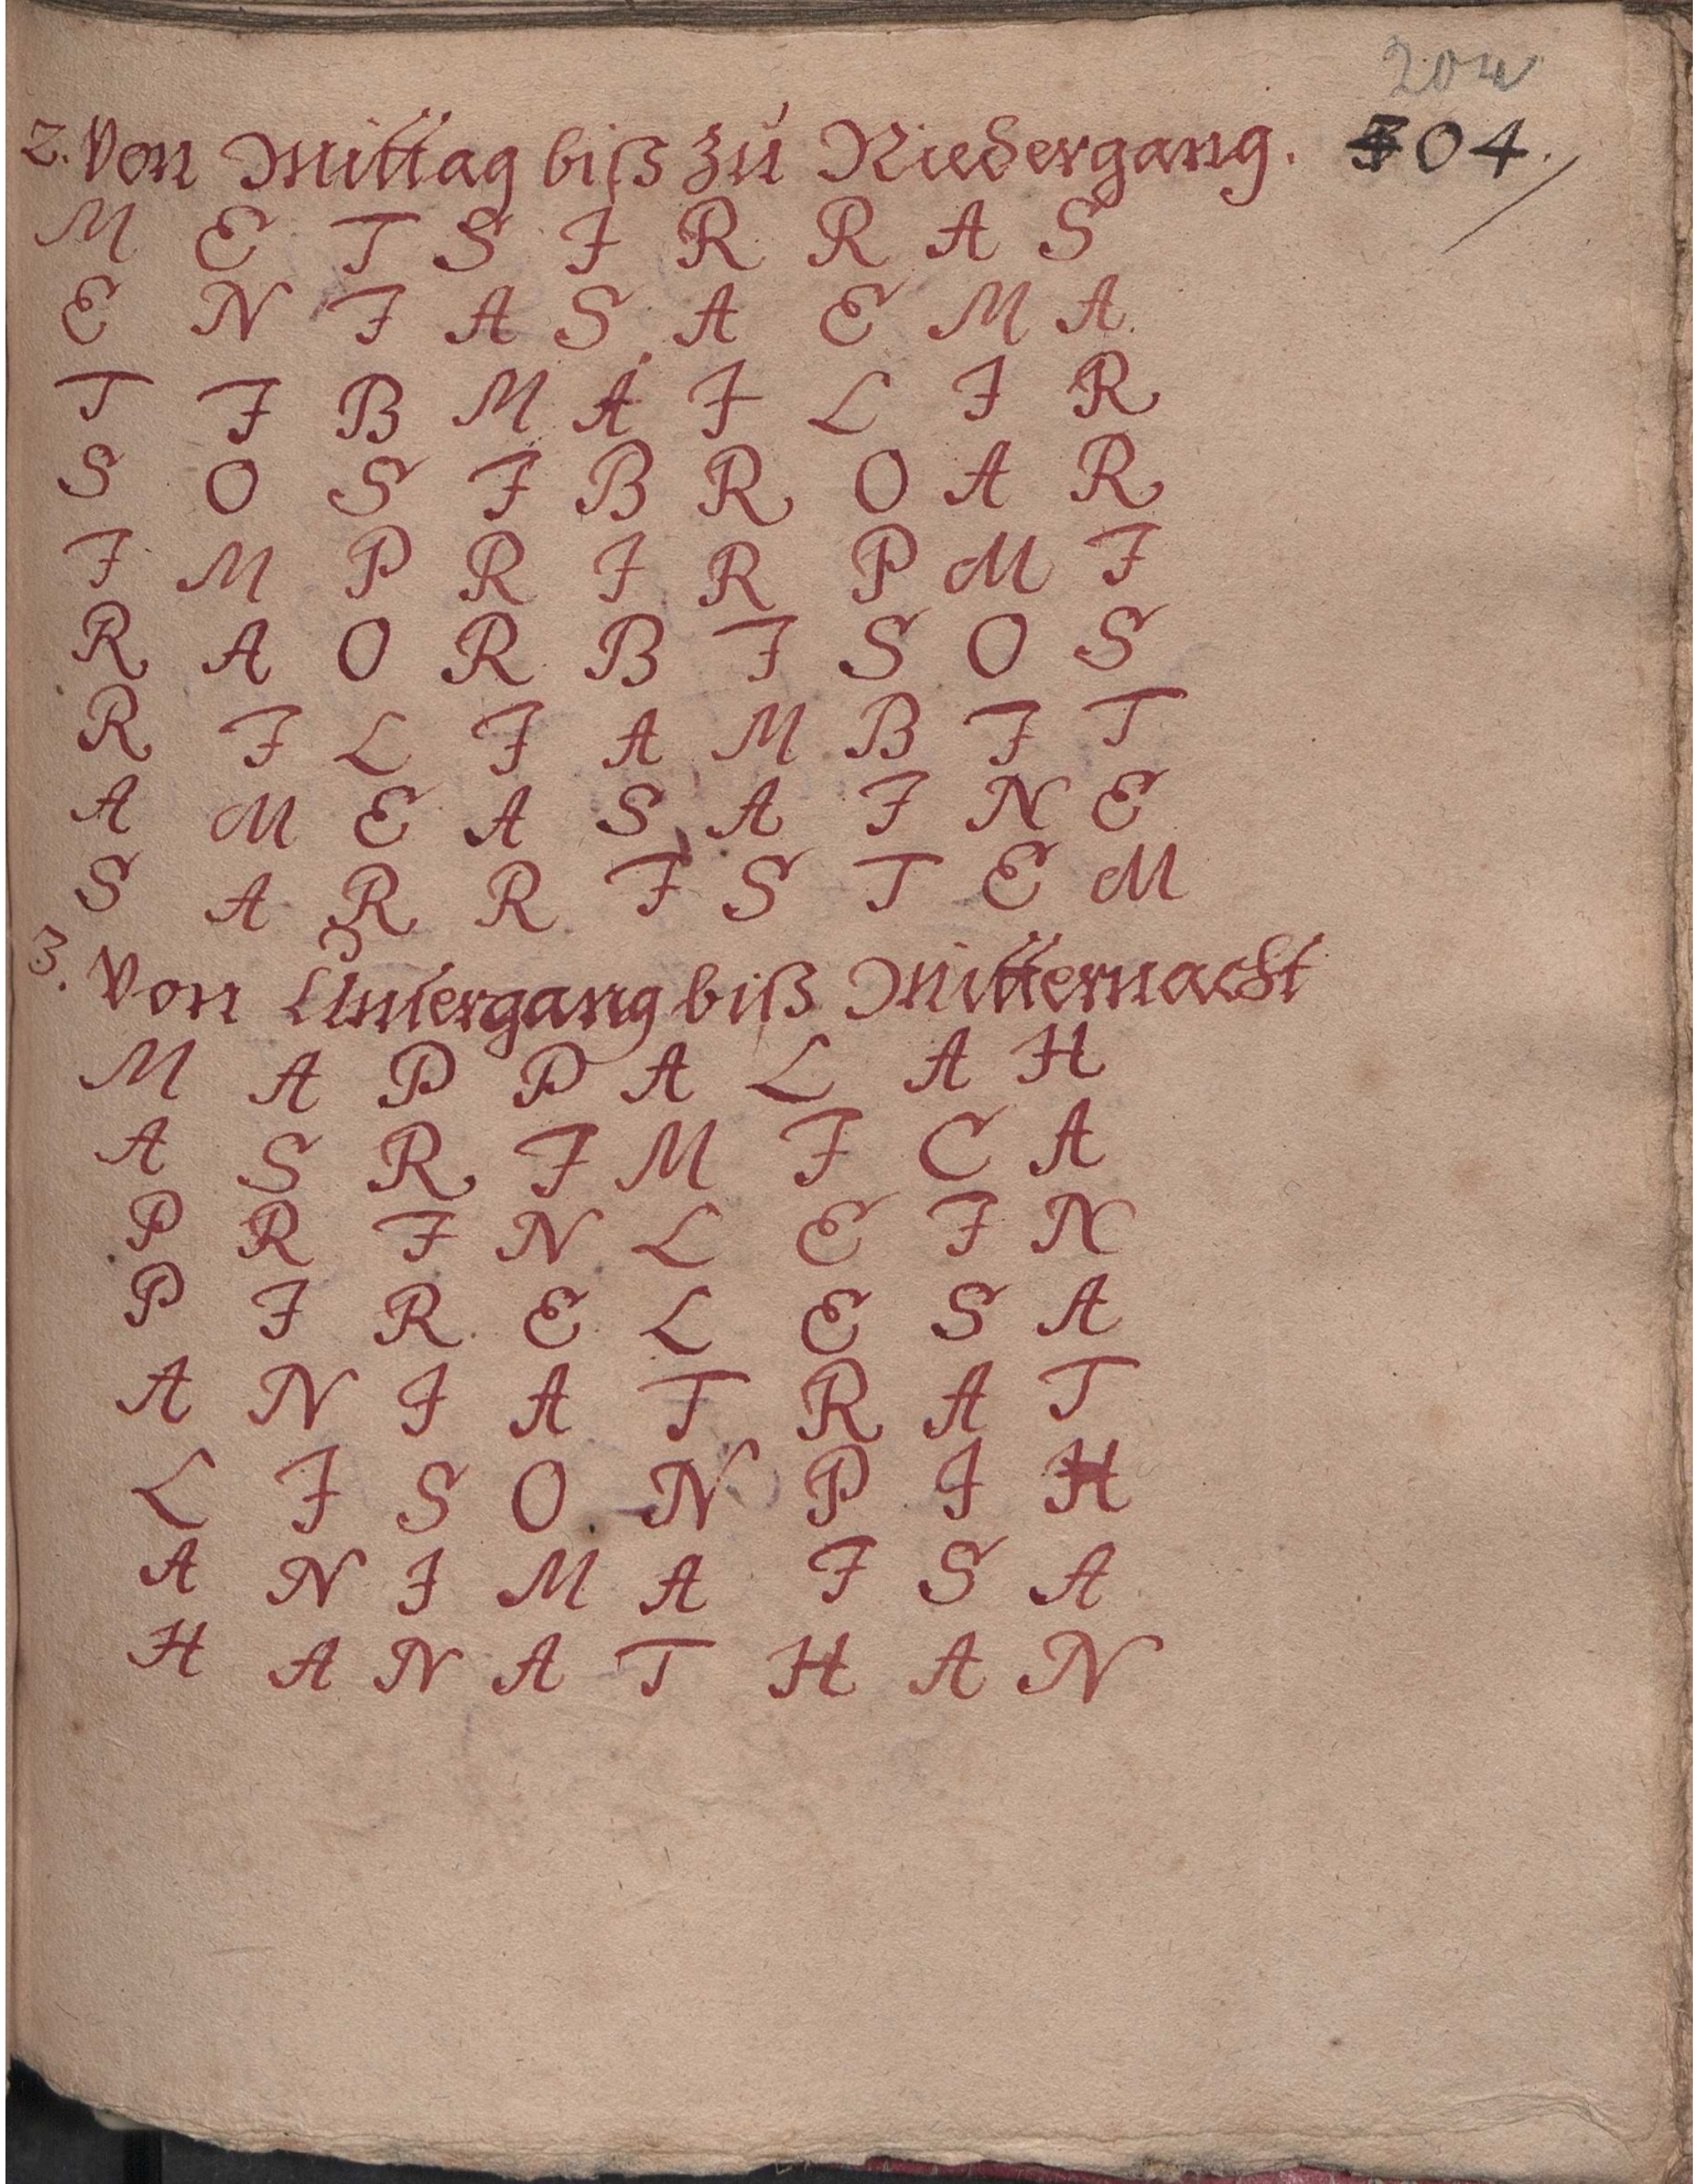 204
2. Von Mittag biß zu Niedergang. 304.
M E T S I R R A S
E N I A S A E M A
T I B M A I L I R
S O S I B R O A R
I M P R I R P M I
R A O R B I S O S
R I L I A M B I T
A M E A S A I N E
S A R R I S T E M
3. Von Untergang biß Mitternacht
M A P P A L A H
A S R I M I C A
P R I N L E I N
P I R E L E S A
A N I A T R A T
L I S O N P I H
A N I M A I S A
H A N A T H A N